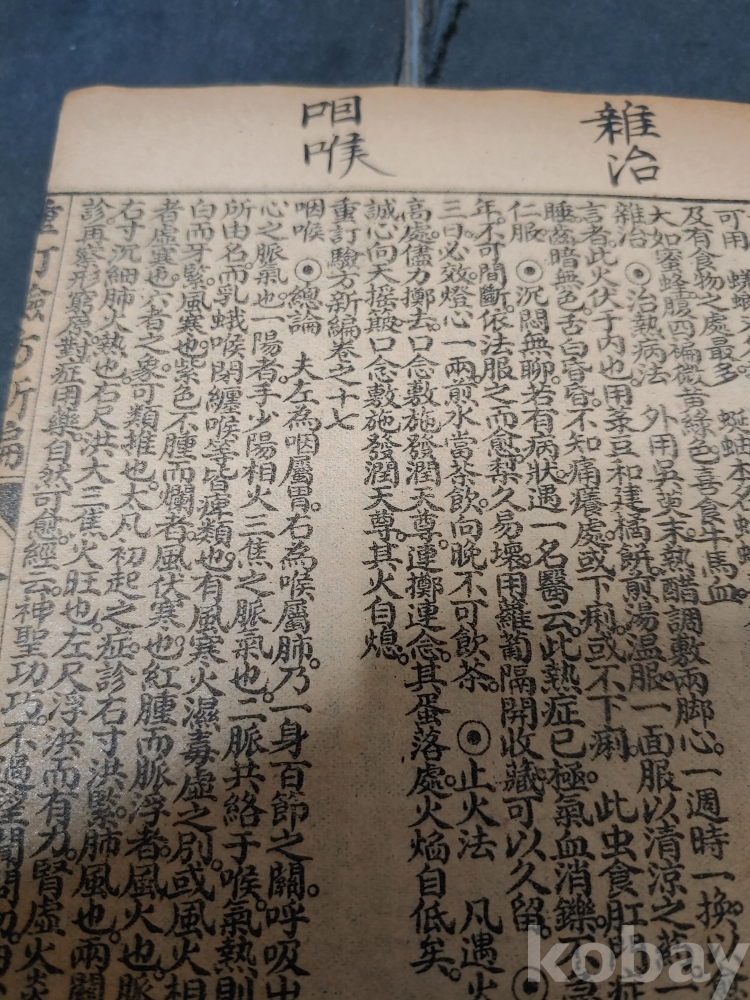 雜治
咽喉
可用
及有食物之處最多
大如蜜蜂腹四徧微黃綠色喜食牛馬血
雜治 ⊙治熱病法 外用吳萸末熱醋調敷兩脚心。一週時一換。
言者此火伏于內也。用菉豆和建橘餅煎湯溫服。一面服以清涼之藥。一
睡。齒暗無色。舌白昏昏。不知痛癢處。或下痢。或不下痢。 此虫食肛門症
仁服 ⊙沉悶無聊。若有病狀。遇一名醫云。此熱症已極。氣血消鑠。不
年。不可間斷。依法服之而愈。梨久易壞。用蘿蔔隔開收藏。可以久留。⊙
三日必效。燈心一兩。煎水當茶飲。向晚不可飲茶。 ⊙止火法 凡遇火
高處儘力擲去。口念敷施發潤天尊。連擲連念。其蛋落處。火焰自低矣。
誠心向天搖簸。口念敷施發潤天尊。其火自熄。
重訂驗方新編卷之十七
咽喉 ⊙總論 夫左為咽屬胃。右為喉屬肺。乃一身百節之關。呼吸出
心之脈氣也。一陽者手少陽相火三焦之脈氣也。二脈共絡于喉。氣熱則
所由名。而乳蛾喉閉纏喉等皆痺類也。有風寒火濕毒虛之別。或風火相
白而牙緊風寒也。紫色不腫而爛者風伏寒也。紅腫而脈浮者風火也。脈
者虛寒也。六者之象可類推也。大凡初起之症。診右寸洪緊肺風也。兩關
右寸沉細肺火熱也。右尺洪大三焦火旺也。左尺浮洪而有力腎虛火炎
診再察形窮原對症用藥。自然可愈。經云。神聖功巧。不過望聞問切。
重訂驗方新編
kobay